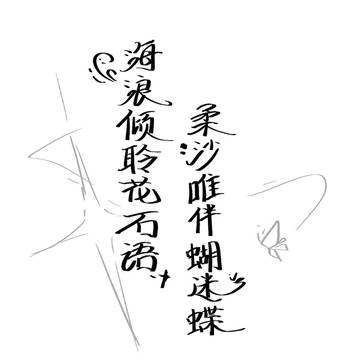 海浪倾聆花石语
柔沙唯伴蝴迷蝶